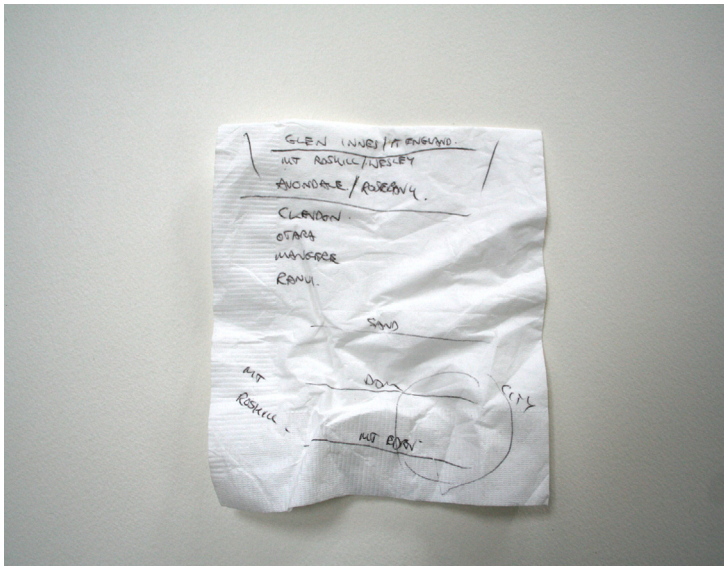 GLEN INNES/PT ENGLAND.
MT ROSKILL/WESLEY
AVONDALE/ROSEBANK.
CLENDON.
OTARA
MANGERE
RANUI.
SAND
DOM
MT EDEN
MT
ROSKILL.
CITY